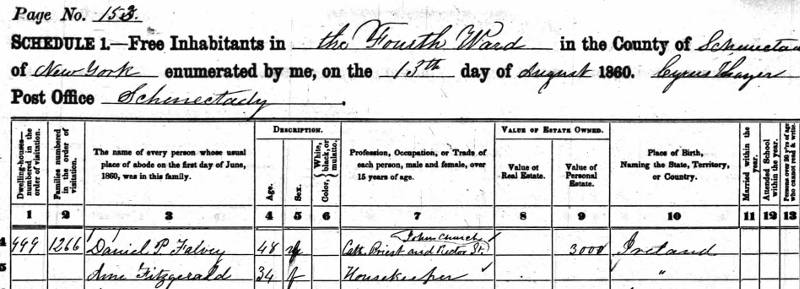 Page No. 153.
SCHEDULE 1.—Free Inhabitants in the Fourth Ward in the County of Schenectad
of New York enumerated by me, on the 13th day of August 1860. Cyrus Thayer
Post Office Schenectady.
DESCRIPTION. VALUE OF ESTATE OWNED.
Dwelling-houses—numbered in the order of visitation. Families numbered in the order of visitation. The name of every person whose usual place of abode on the first day of June, 1860, was in this family. Age. Sex. Color, White, black, or mulatto. Profession, Occupation, or Trade of each person, male and female, over 15 years of age. Value of Real Estate. Value of Personal Estate. Place of Birth, Naming the State, Territory, or Country. Married within the year. Attended School within the year. Persons over 20 y'rs of age who cannot read & write.
1 2 3 4 5 6 7 8 9 10 11 12 13
John Church
999 1266 Daniel P. Falvey 48 m Cath. Priest and Rector St. 3000 Ireland
5 Fitzgerald 34 f Housekeeper "